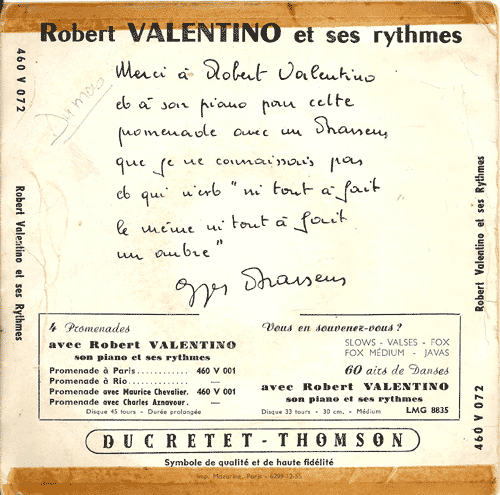 Robert VALENTINO et ses rythmes
460 V 072
Dumas
Robert Valentino et ses Rythmes
Merci à Robert Valentino
et à son piano pour cette
promenade avec un Brassens
que je ne connaissais pas
et qui n'est "ni tout à fait
le même ni tout à fait
un autre"
Robert Valentino et ses Rythmes
460 V 072
4 Promenades
avec Robert VALENTINO
son piano et ses rythmes
Promenade à Paris............ 460 V 001
Promenade à Rio.............. —
Promenade avec Maurice Chevalier. 460 V 001
Promenade avec Charles Aznavour. —
Disque 45 tours - Durée prolongée
Vous en souvenez-vous ?
SLOWS - VALSES - FOX
FOX MÉDIUM - JAVAS
60 airs de Danses
avec Robert VALENTINO
son piano et ses rythmes
Disque 33 tours - 30 cm. - Médium LMG 8835
DUCRETET-THOMSON
Symbole de qualité et de haute fidélité
Imp. Mazarine, Paris - 6299-12-55